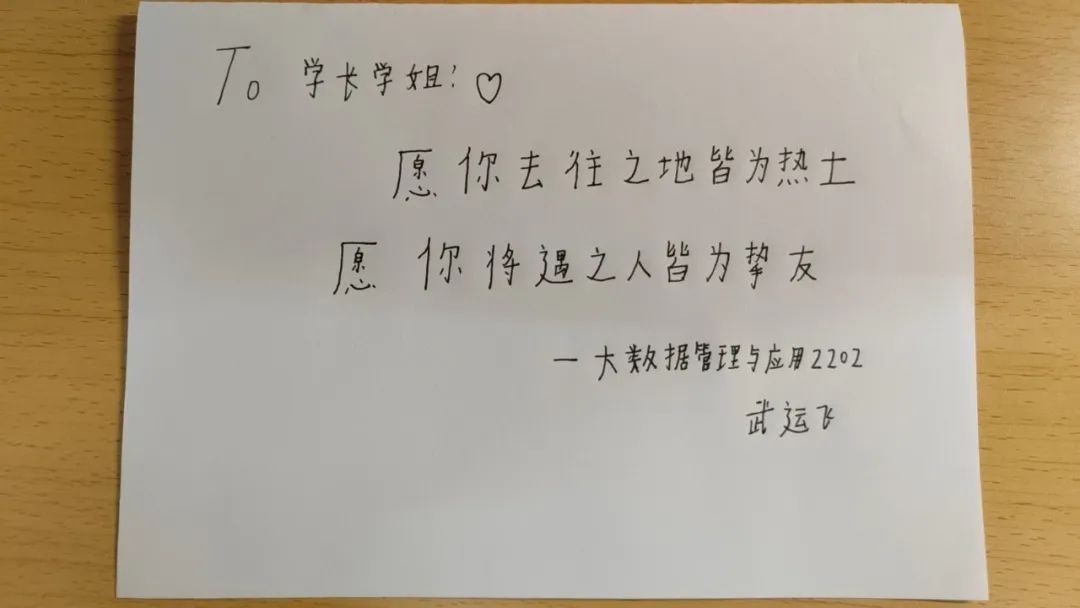 To 学长学姐：♡
愿你去往之地皆为热土
愿你将遇之人皆为挚友
一大数据管理与应用2202
武运飞